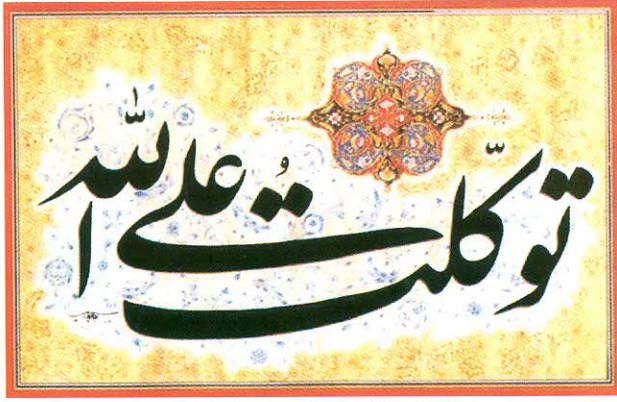 توکّلتُ علی الله